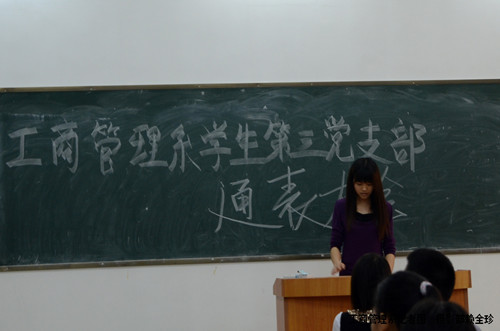 工商管理系学生第三党支部
通表大会